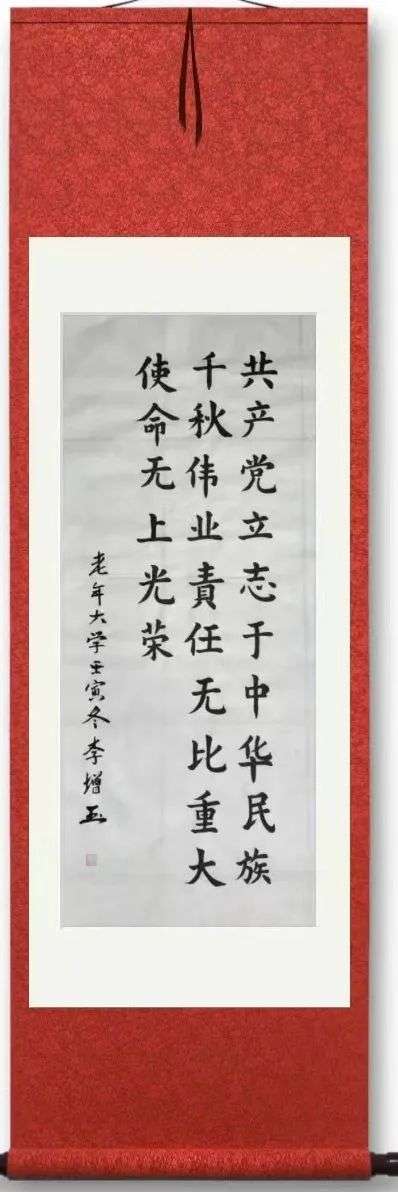 共产党立志于中华民族
千秋伟业責任无比重大
使命无上光荣
老年大学壬寅冬李增玉